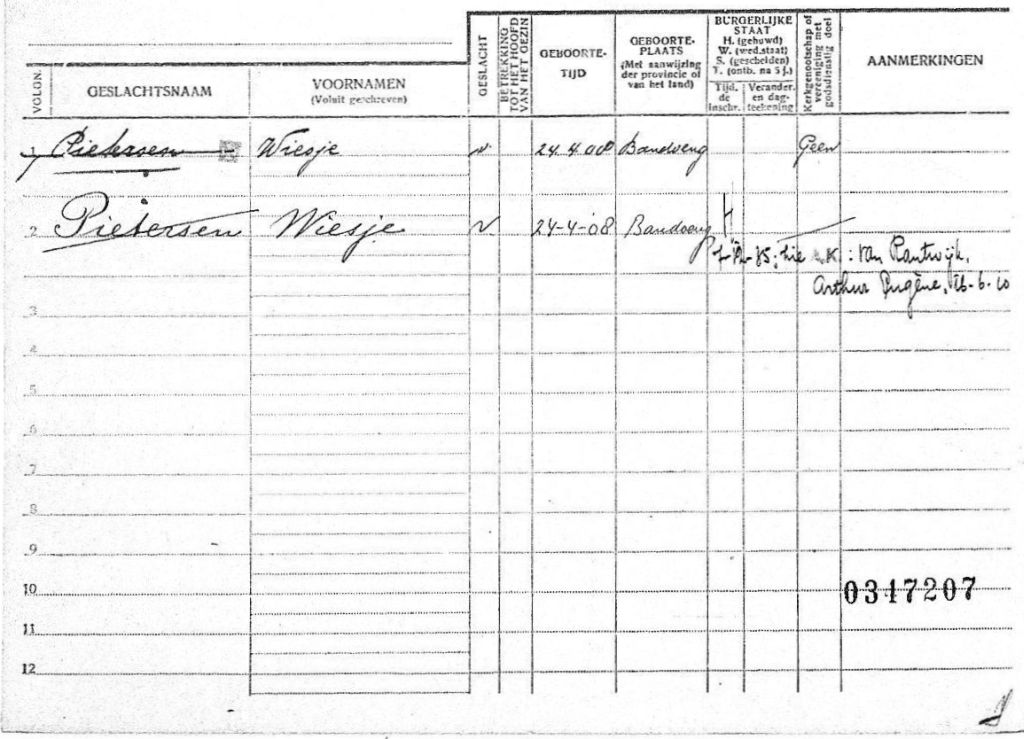 VOLGN.
GESLACHTSNAAM
VOORNAMEN
(Voluit geschreven)
GESLACHT
BETREKKING TOT HET HOOFD VAN HET GEZIN
GEBOORTE-
TIJD
GEBOORTE-
PLAATS
(Met aanwijzing
der provincie of
van het land)
BURGERLIJKE
STAAT
H. (gehuwd)
W. (wed.staat)
S. (gescheiden)
T. (ontb. na 5 j.)
Tijd.
de
inschr.
Verander.
en dag-
teekening
Kerkgenootschap of vereeniging met godsdienstig doel
AANMERKINGEN
1 Pietersen Wiesje v. 24.4.08 Bandoeng Geen
2 Pietersen Wiesje v. 24-4-08 Bandoeng H
zie : van Rantwijk,
Arthur Eugène, 16-6-10
3
4
5
6
7
8
9
10
0347207
11
12